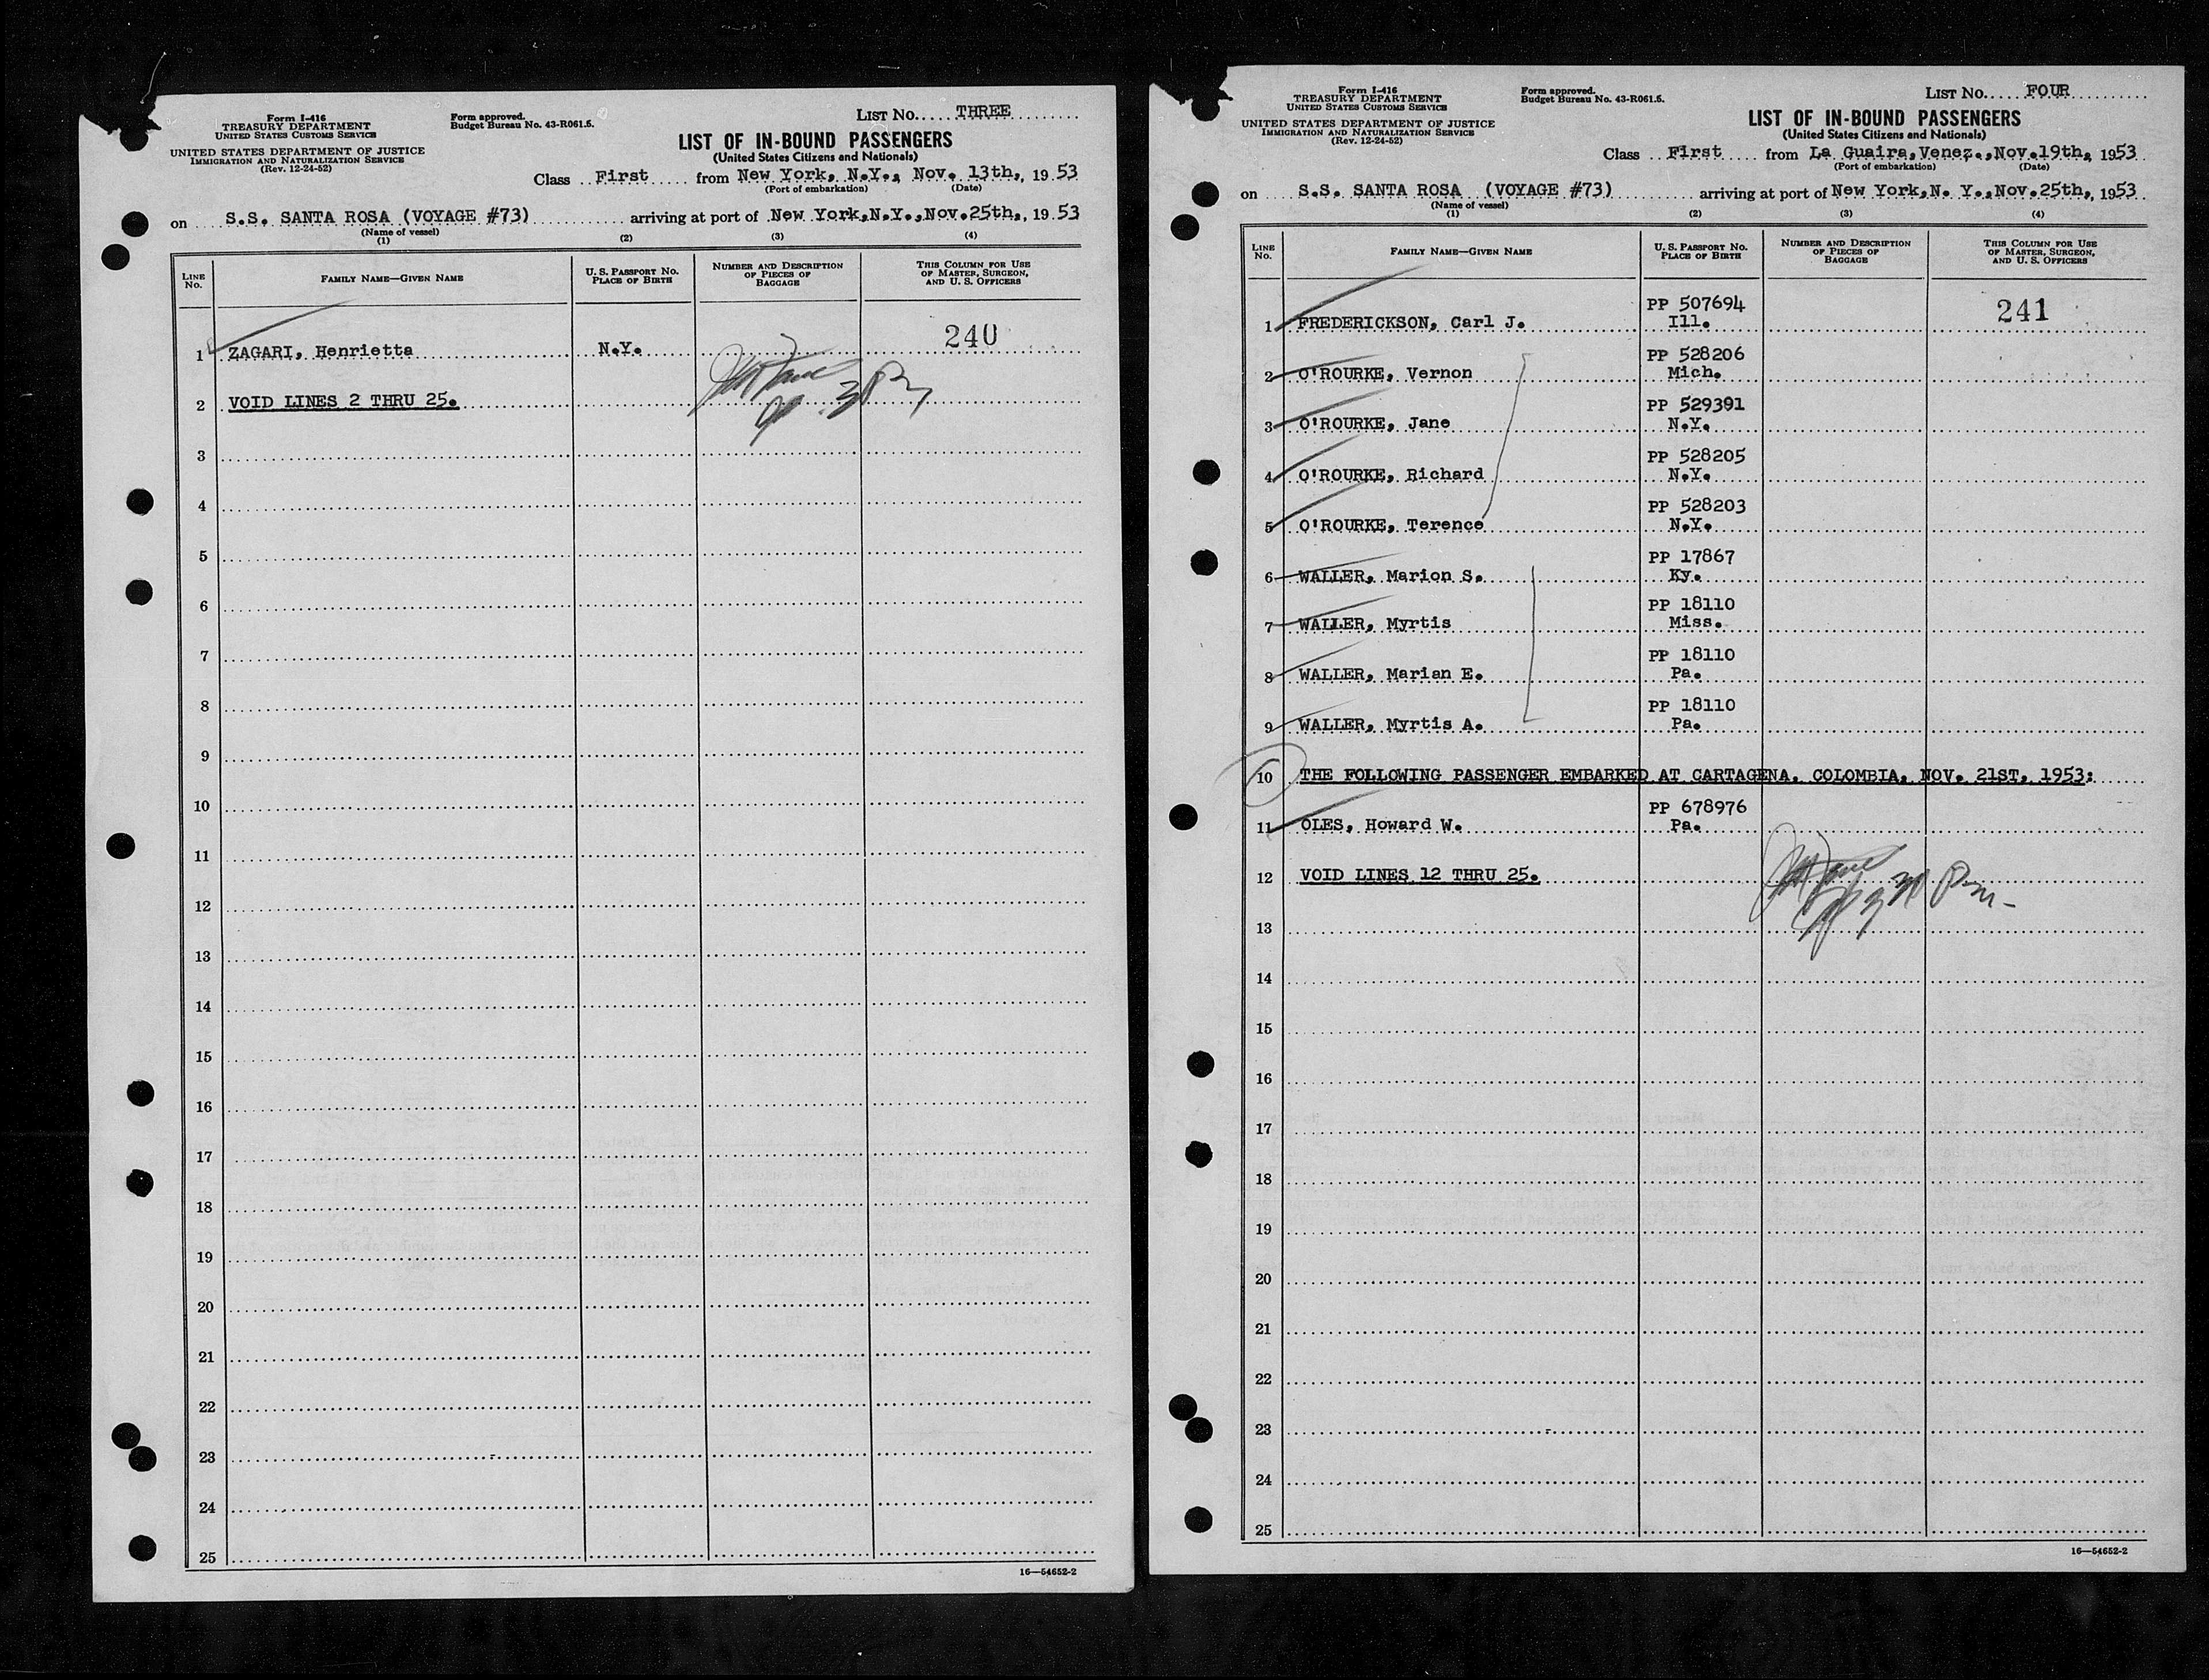 Form I-416
TREASURY DEPARTMENT
UNITED STATES CUSTOMS SERVICE
UNITED STATES DEPARTMENT OF JUSTICE
IMMIGRATION AND NATURALIZATION SERVICE
(Rev. 12-24-52)
Form approved.
Budget Bureau No. 43-R061.5.
LIST No. THREE
LIST OF IN-BOUND PASSENGERS
(United States Citizens and Nationals)
Class First from New York, N.Y., Nov. 13th, 1953
(Port of embarkation) (Date)
on S.S. SANTA ROSA (VOYAGE #73) arriving at port of New York, N.Y., Nov. 25th, 1953
(Name of vessel)
(1) (2) (3) (4)
LINE No. FAMILY NAME—GIVEN NAME U. S. PASSPORT No. PLACE OF BIRTH NUMBER AND DESCRIPTION OF PIECES OF BAGGAGE THIS COLUMN FOR USE OF MASTER, SURGEON, AND U. S. OFFICERS
1 ZAGARI, Henrietta N.Y. 240
2 VOID LINES 2 THRU 25.
3
4
5
6
7
8
9
10
11
12
13
14
15
16
17
18
19
20
21
22
23
24
25
16—54652-2
Form I-416
TREASURY DEPARTMENT
UNITED STATES CUSTOMS SERVICE
UNITED STATES DEPARTMENT OF JUSTICE
IMMIGRATION AND NATURALIZATION SERVICE
(Rev. 12-24-52)
Form approved.
Budget Bureau No. 43-R061.5.
LIST No. FOUR
LIST OF IN-BOUND PASSENGERS
(United States Citizens and Nationals)
Class First from La Guaira, Venez., Nov. 19th, 1953
(Port of embarkation) (Date)
on S.S. SANTA ROSA (VOYAGE #73) arriving at port of New York, N. Y., Nov. 25th, 1953
(Name of vessel)
(1) (2) (3) (4)
LINE No. FAMILY NAME—GIVEN NAME U. S. PASSPORT No. PLACE OF BIRTH NUMBER AND DESCRIPTION OF PIECES OF BAGGAGE THIS COLUMN FOR USE OF MASTER, SURGEON, AND U. S. OFFICERS
PP 507694
1 FREDERICKSON, Carl J. Ill. 241
PP 528206
2 O'ROURKE, Vernon Mich.
PP 529391
3 O'ROURKE, Jane N.Y.
PP 528205
4 O'ROURKE, Richard N.Y.
PP 528203
5 O'ROURKE, Terence N.Y.
PP 17867
6 WALLER, Marion S. Ky.
PP 18110
7 WALLER, Myrtis Miss.
PP 18110
8 WALLER, Marian E. Pa.
PP 18110
9 WALLER, Myrtis A. Pa.
10 THE FOLLOWING PASSENGER EMBARKED AT CARTAGENA, COLOMBIA, NOV. 21ST, 1953:
PP 678976
11 OLES, Howard W. Pa.
12 VOID LINES 12 THRU 25.
13
14
15
16
17
18
19
20
21
22
23
24
25
16—54652-2